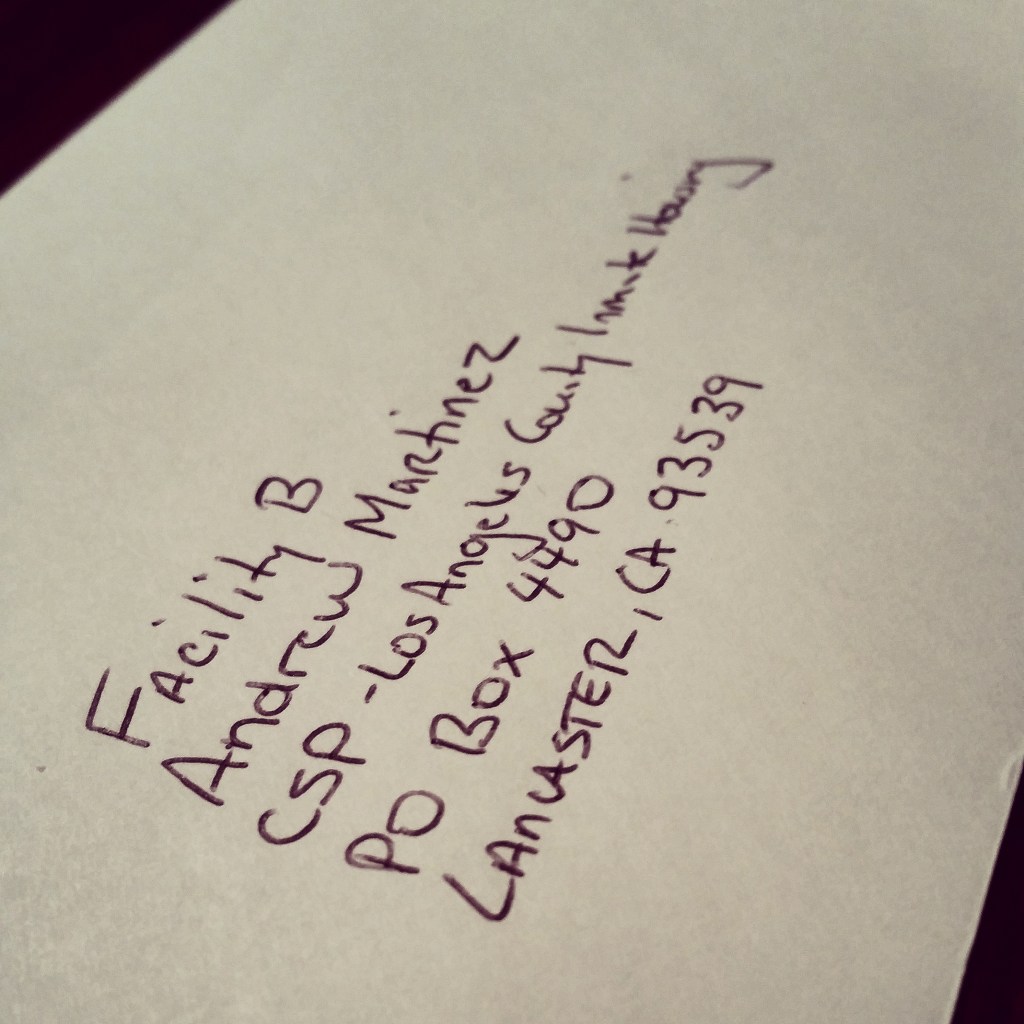 Facility B
Andrew Martinez
CSP - Los Angeles County Inmate Housing
PO Box 4490
LANCASTER, CA. 93539